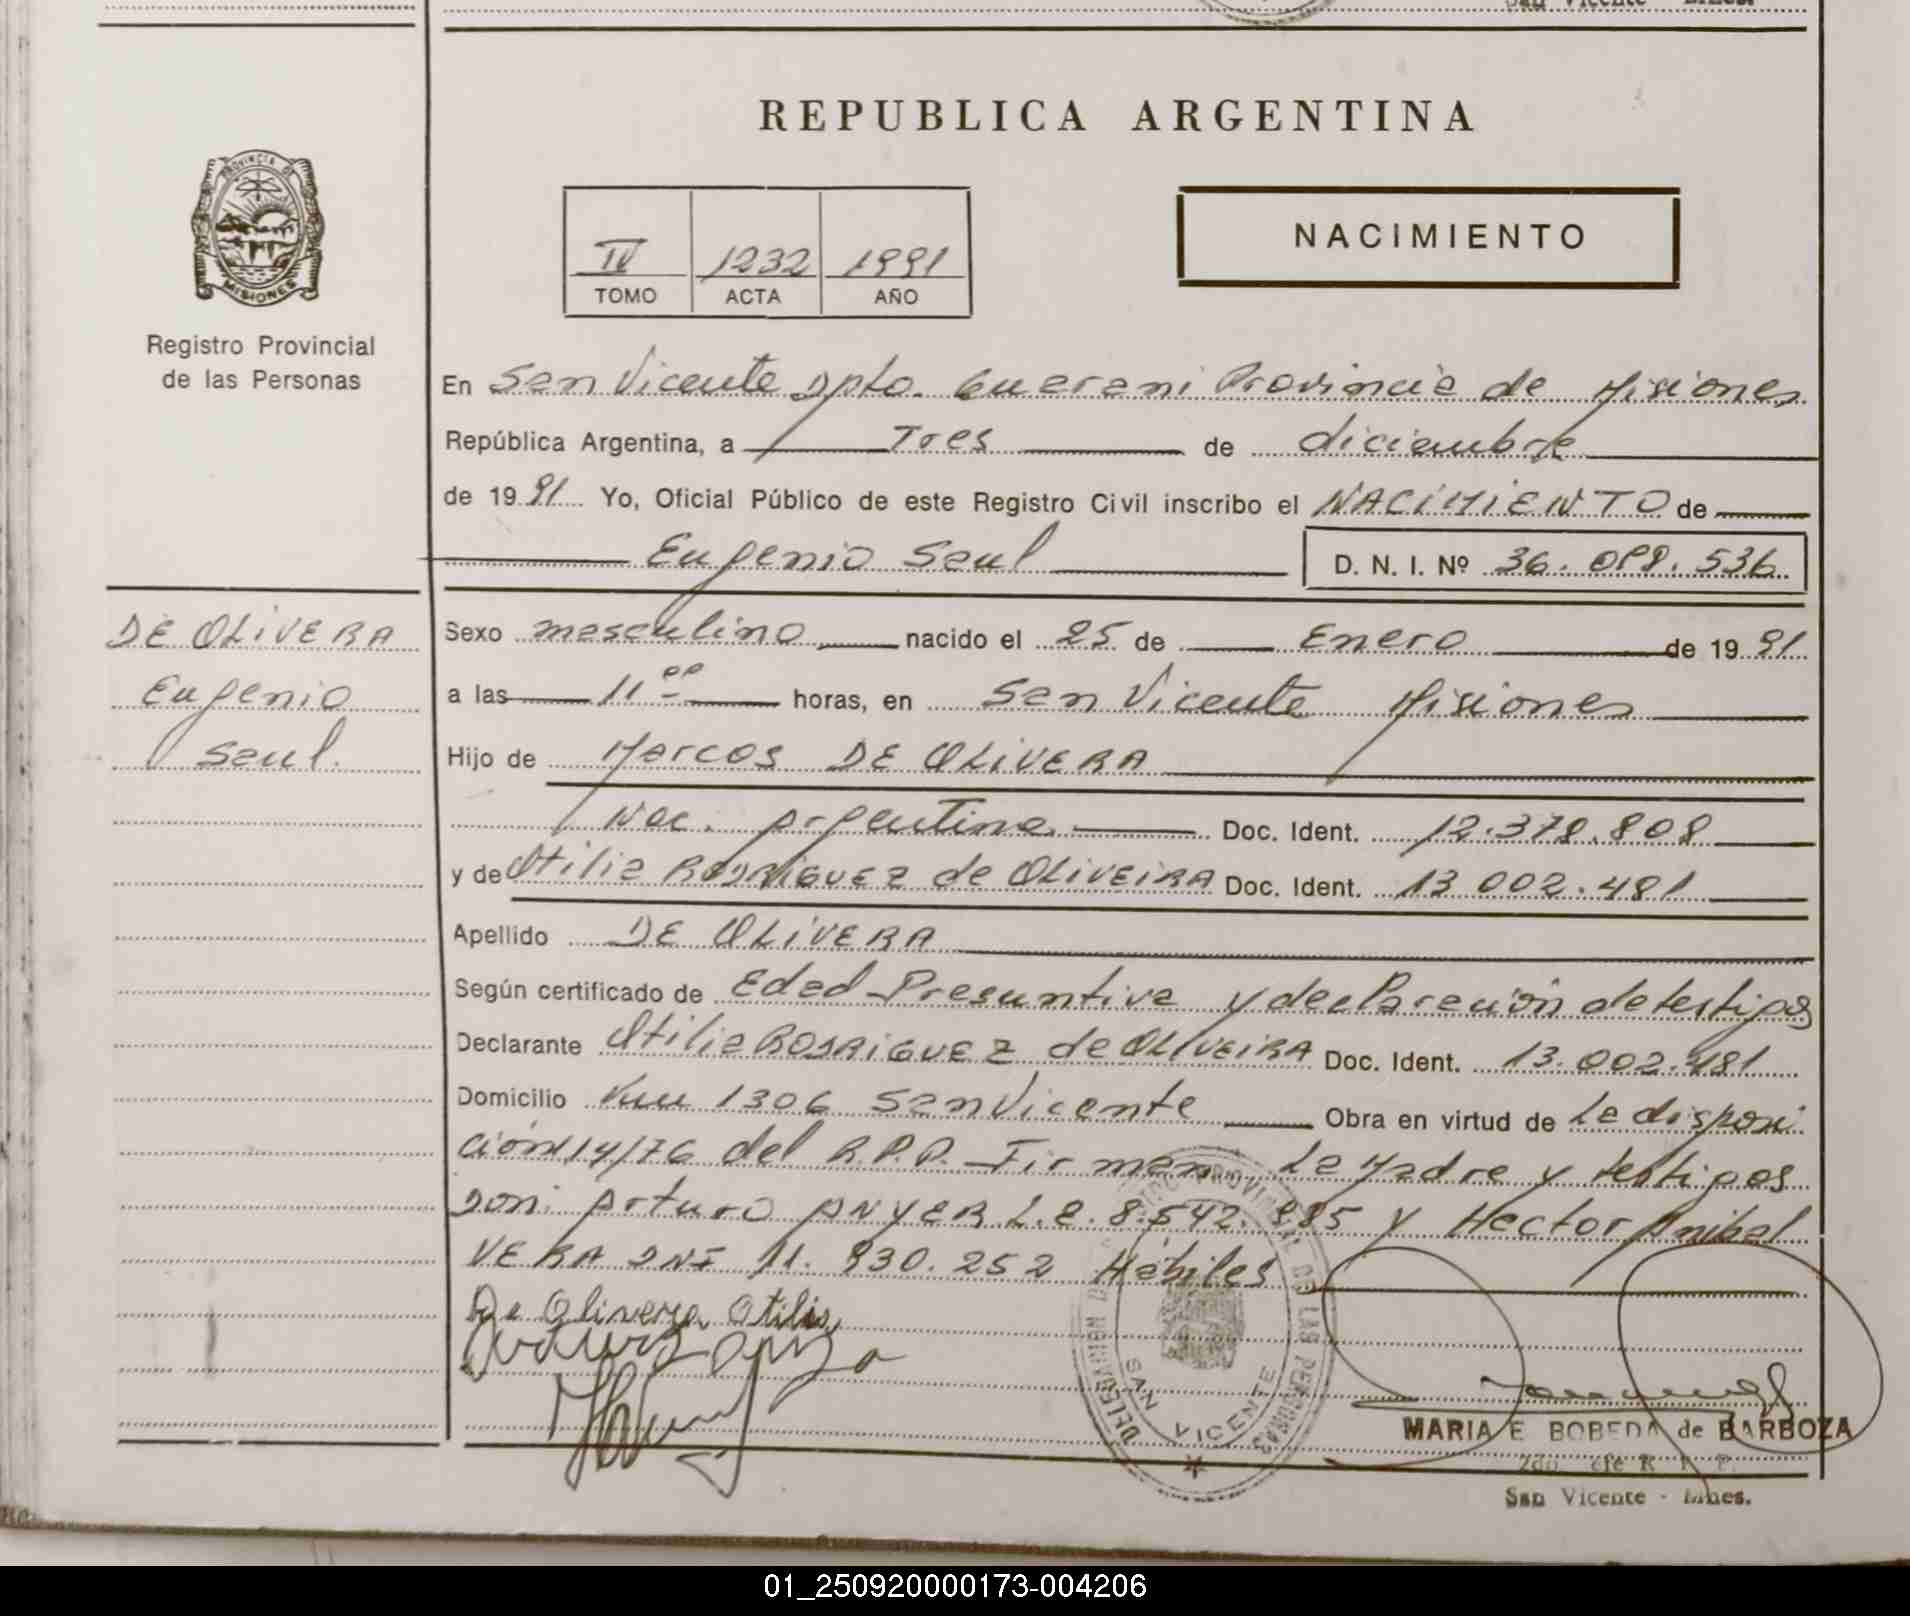 San Vicente
REPUBLICA ARGENTINA
PROVINCIA DE
MISIONES
Registro Provincial
de las Personas
IV 1232 1991
TOMO ACTA AÑO
NACIMIENTO
En San Vicente Dpto. Guarani Provincia de Misiones
República Argentina, a Tres de diciembre
de 1991 Yo, Oficial Público de este Registro Civil inscribo el NACIMIENTO de
Eugenio Saul D. N. I. Nº 36. 536
DE OLIVERA
Eugenio
Saul.
Sexo masculino nacido el 25 de Enero de 1991
a las 11 00 horas, en San Vicente Misiones
Hijo de Marcos DE OLIVERA
Nac. Argentina Doc. Ident. 12.378.808
y de Otilia RODRIGUEZ de OLIVEIRA Doc. Ident. 13 002.481
Apellido DE OLIVERA
Según certificado de Edad Presuntiva y declaración de testigos
Declarante Otilia RODRIGUEZ de OLIVEIRA Doc. Ident. 13.002.481
Domicilio Km 1306 San Vicente Obra en virtud de La disposi
ción 14/76 del R.P.P. Firman La Madre y testigos
Don: Arturo ANYER L.E. 8.542. y Hector Anibal
VERA DNI 11.930.252 Hábiles
De Olivera Otilia
DELEGACION PROVINCIAL DE LAS PERSONAS
SAN VICENTE
MARIA E BOBEDA de BARBOZA
2do. Jefe R. P. P.
San Vicente - Mnes.
01_250920000173-004206